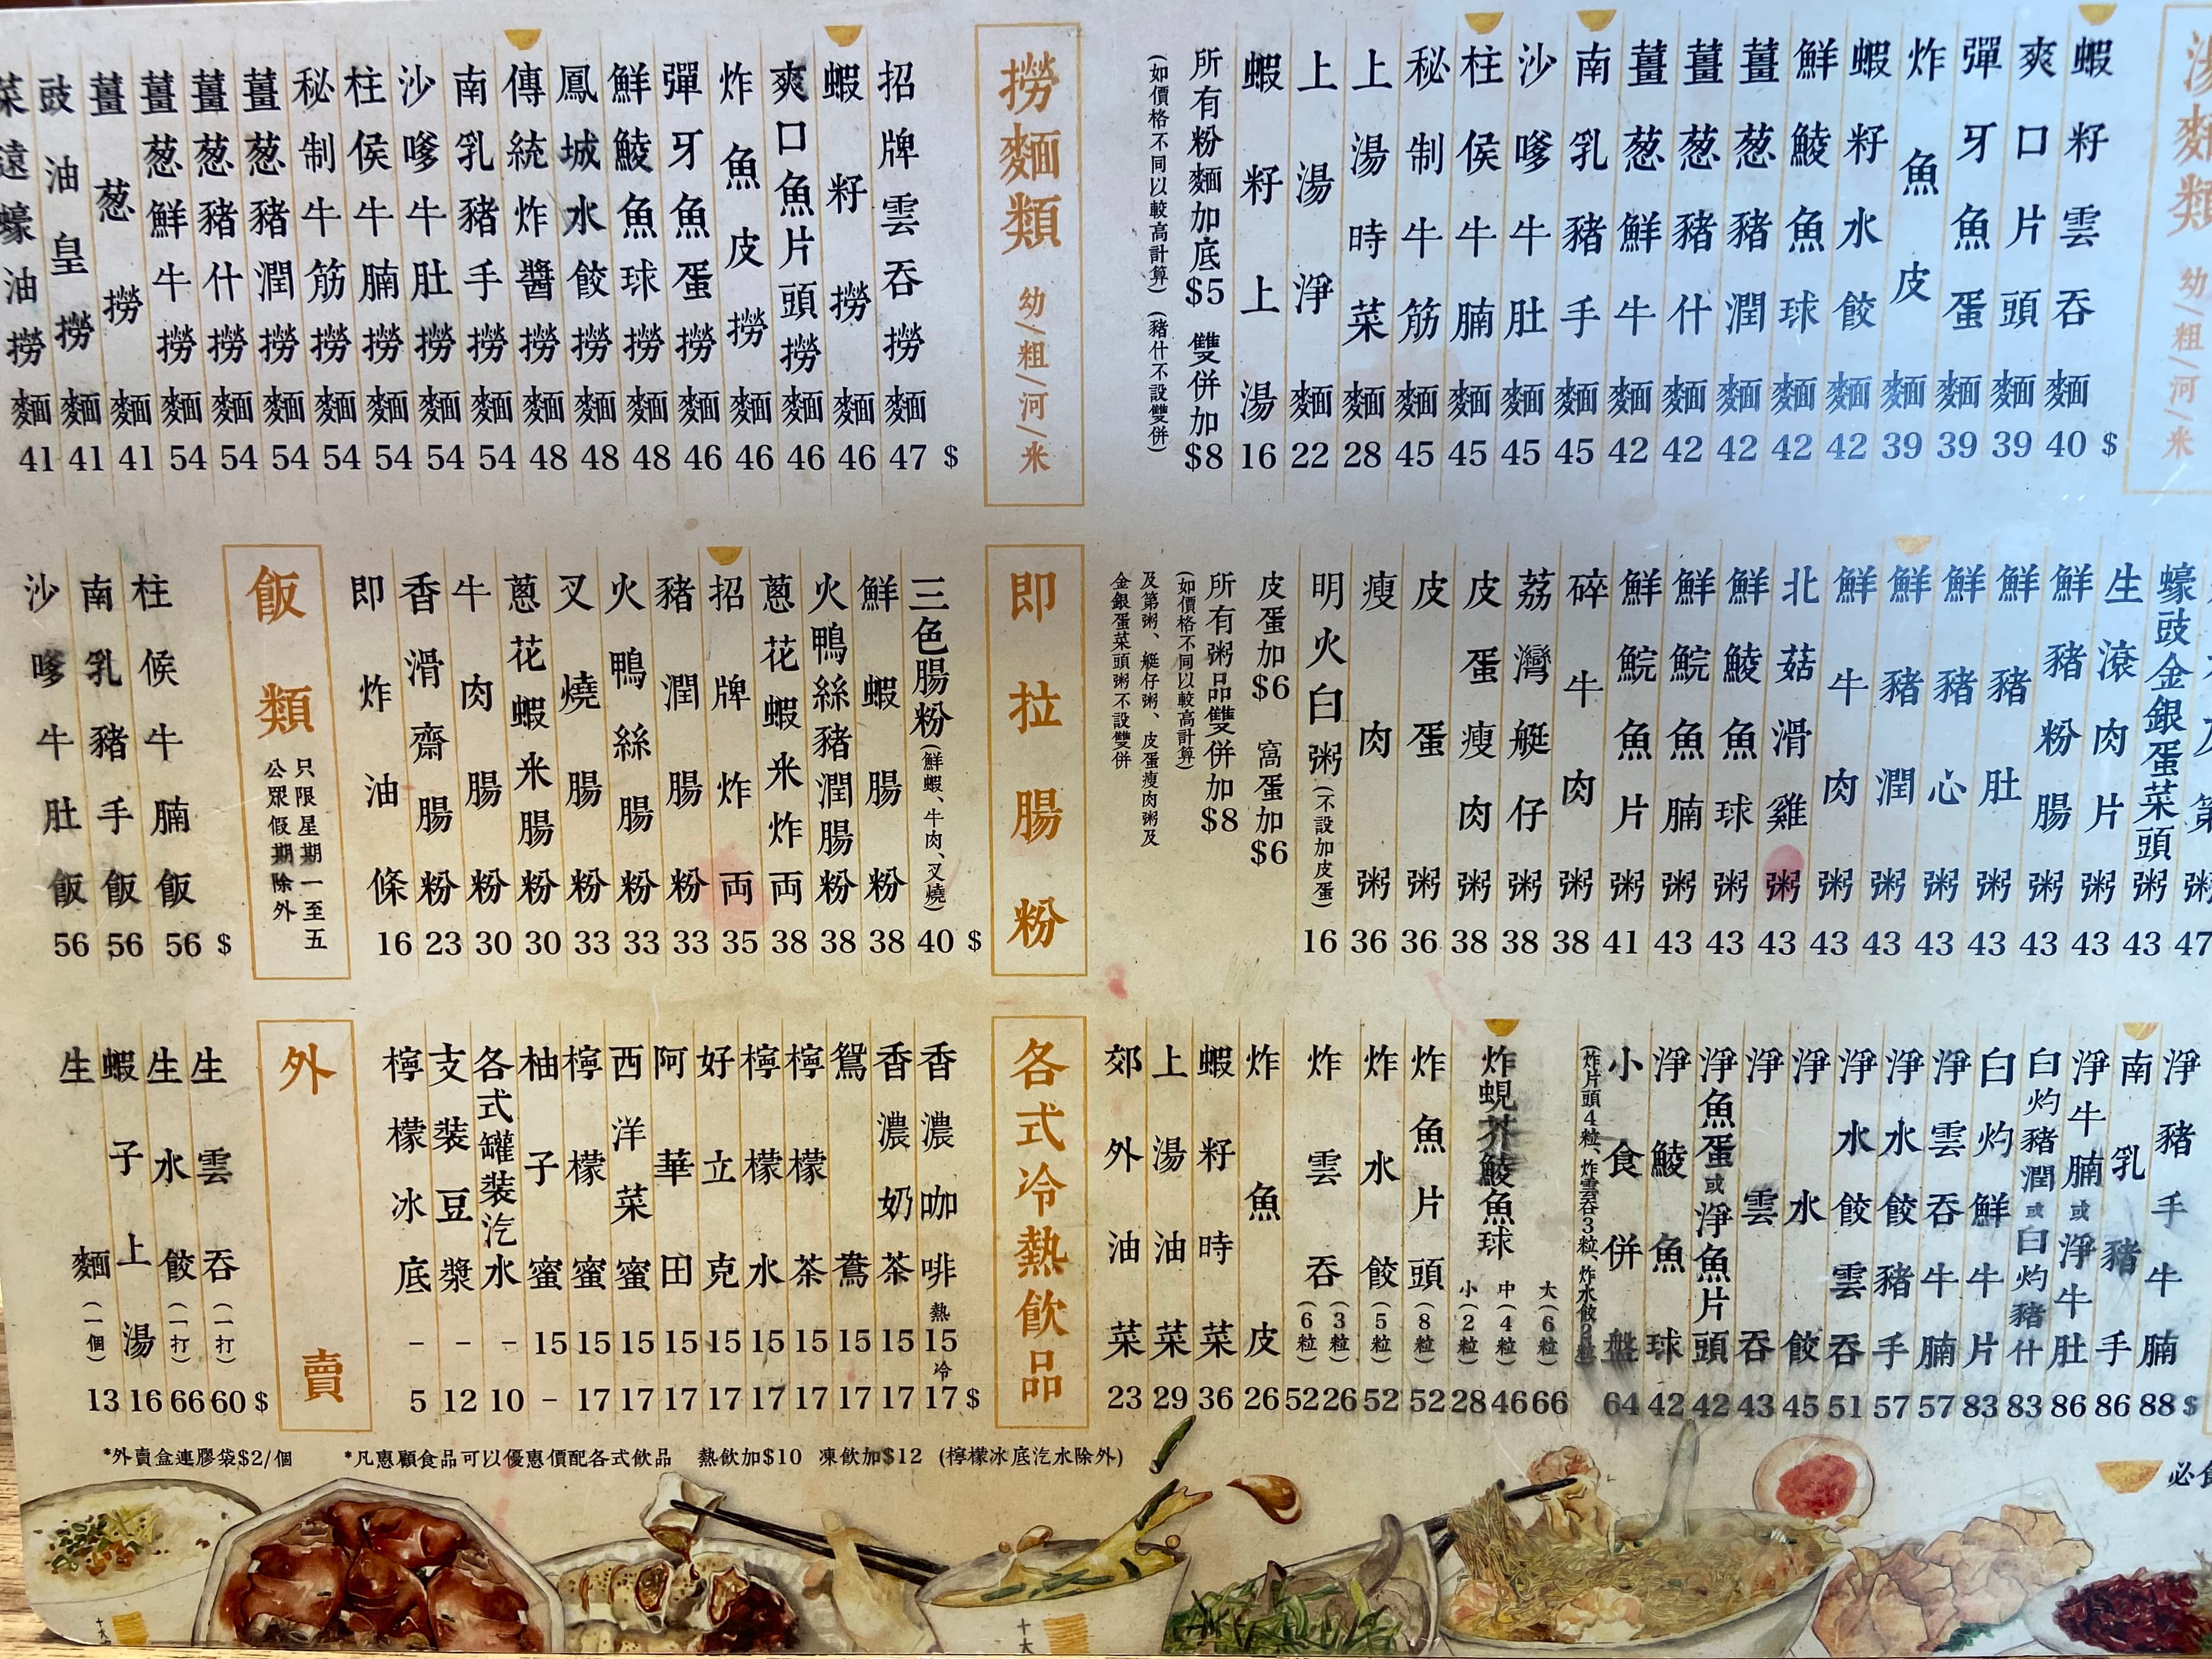 湯麵類 幼/粗/河/米
蝦籽雲吞麵 40 $
爽口片頭麵 39
彈牙魚蛋麵 39
炸魚皮麵 39
蝦籽水餃麵 42
鮮鯪魚球麵 42
薑葱豬潤麵 42
薑葱豬什麵 42
薑葱鮮牛麵 42
南乳豬手麵 45
沙嗲牛肚麵 45
柱侯牛腩麵 45
秘制牛筋麵 45
上湯時菜麵 28
上湯淨麵 22
蝦籽上湯 16
所有粉麵加底$5 雙併加$8
(如價格不同以較高計算)(豬什不設雙併)
撈麵類 幼/粗/河/米
招牌雲吞撈麵 47 $
蝦籽撈麵 46
爽口魚片頭撈麵 46
炸魚皮撈麵 46
彈牙魚蛋撈麵 46
鮮鯪魚球撈麵 48
鳳城水餃撈麵 48
傳統炸醬撈麵 48
南乳豬手撈麵 54
沙嗲牛肚撈麵 54
柱侯牛腩撈麵 54
秘制牛筋撈麵 54
薑葱豬潤撈麵 54
薑葱豬什撈麵 54
薑葱鮮牛撈麵 54
薑葱撈麵 41
豉油皇撈麵 41
菜遠蠔油撈麵 41
47
蠔豉金銀蛋菜頭粥 43
生滾肉片粥 43
鮮豬粉腸粥 43
鮮豬肚粥 43
鮮豬心粥 43
鮮豬潤粥 43
鮮牛肉粥 43
北菇滑雞粥 43
鮮鯪魚球粥 43
鮮鯇魚腩粥 43
鮮鯇魚片粥 41
碎牛肉粥 38
荔灣艇仔粥 38
皮蛋瘦肉粥 38
皮蛋粥 36
瘦肉粥 36
明火白粥(不設加皮蛋) 16
皮蛋加$6 窩蛋加$6
所有粥品雙併加$8
(如價格不同以較高計算)
及第粥、艇仔粥、皮蛋瘦肉粥及
金銀蛋菜頭粥不設雙併
即拉腸粉
三色腸粉(鮮蝦、牛肉、叉燒) 40 $
鮮蝦腸粉 38
火鴨絲豬潤腸粉 38
蔥花蝦米炸両 38
招牌炸両 35
豬潤腸粉 33
火鴨絲腸粉 33
叉燒腸粉 33
蔥花蝦米腸粉 30
牛肉腸粉 30
香滑齋腸粉 23
即炸油條 16
飯類
只限星期一至五
公眾假期除外
柱候牛腩飯 56 $
南乳豬手飯 56
沙嗲牛肚飯 56
淨豬手牛腩 88 $
南乳豬手 86
淨牛腩或淨牛肚 86
白灼豬潤或白灼豬什 83
白灼鮮牛片 83
淨雲吞牛腩 57
淨水餃豬手 57
淨水餃雲吞 51
淨水餃 45
淨雲吞 43
淨魚蛋或淨魚片頭 42
淨鯪魚球 42
小食併盤 64
(炸片頭4粒、炸雲吞3粒、炸水餃2粒)
炸蜆芥鯪魚球 大(6粒) 66 中(4粒) 46 小(2粒) 28
炸魚片頭(8粒) 52
炸水餃(5粒) 52
炸雲吞 (3粒) 26 (6粒) 52
炸魚皮 26
蝦籽時菜 36
上湯油菜 29
郊外油菜 23
各式冷熱飲品
香濃咖啡 熱 15 冷 17 $
香濃奶茶 15 17
鴛鴦 15 17
檸檬茶 15 17
檸檬水 15 17
好立克 15 17
阿華田 15 17
西洋菜蜜 15 17
檸檬蜜 15 17
柚子蜜 15 –
各式罐裝汽水 – 10
支裝豆漿 – 12
檸檬冰底 – 5
外賣
生雲吞(一打) 60 $
生水餃(一打) 66
蝦子上湯 16
生麵(一個) 13
*外賣盒連膠袋$2/個 *凡惠顧食品可以優惠價配各式飲品 熱飲加$10 凍飲加$12 (檸檬冰底汽水除外)
必食
十大
十大